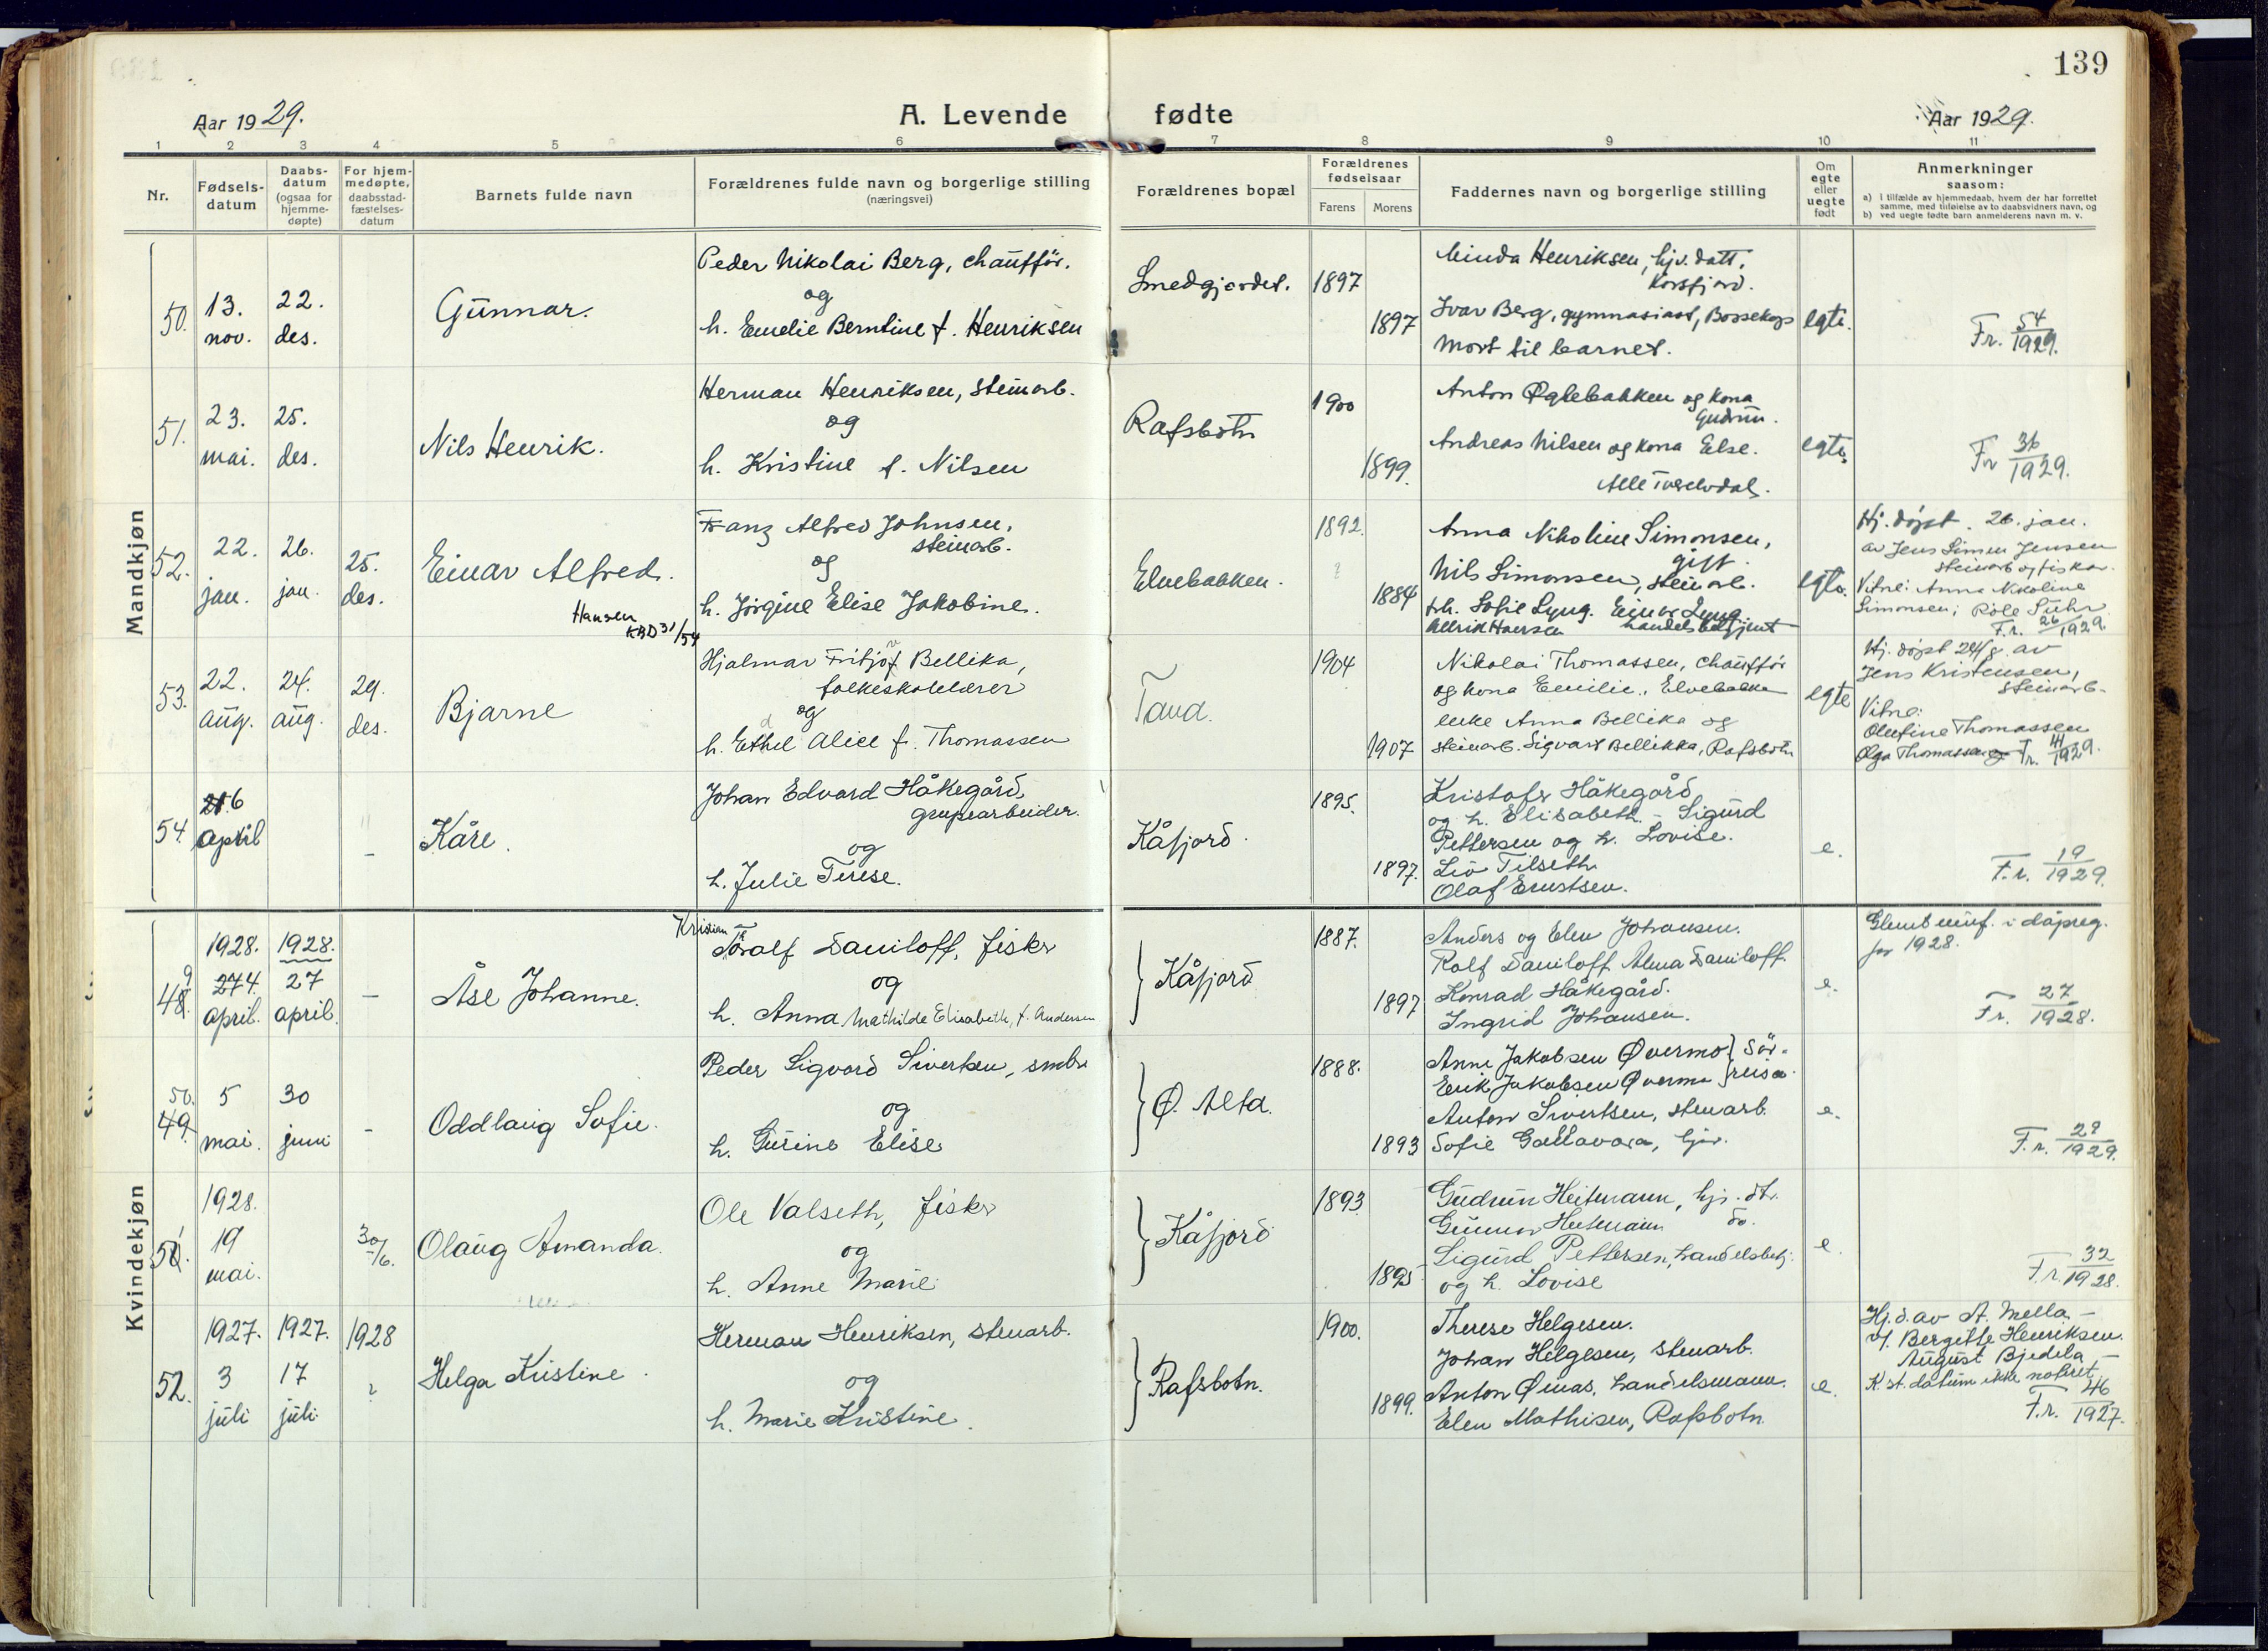 139
Aar 1929.
A. Levende fødte
Aar 1929.
1 2 3 4 5 6 7 8 9 10 11
Nr.
Fødsels-
datum
Daabs-
datum
(ogsaa for
hjemme-
døpte)
For hjem-
medøpte,
daabsstad-
fæstelses-
datum
Barnets fulde navn
Forældrenes fulde navn og borgerlige stilling
(næringsvei)
Forældrenes bopæl
Forældrenes
fødselsaar
Farens Morens
Faddernes navn og borgerlige stilling
Om
egte
eller
uegte
født
Anmerkninger
saasom:
a) i tilfælde av hjemmedaab, hvem der har forrettet
samme, med tilføielse av to daabsvidners navn, og
b) ved uegte fødte barn anmelderens navn m. v.
Mandkjøn
50. 13. nov. 22. des.
Gunnar.
Peder Nikolai Berg, chauffør.
og
h. Emelie Berntine f. Henriksen
Smedgjordet.
1897
1897
Minda Henriksen, hjv. datt.
Korsfjord.
Ivar Berg, gymnasiast, Bossekop
Mort til barnet.
egte.
Fr. 54/1929.
51. 23. mai. 25. des.
Nils Henrik.
Herman Henriksen, steinarb.
og
h. Kristine f. Nilsen
Rafsbotn
1900
1899.
Anton Øglebakken og kona
Gudrun.
Andreas Nilsen og kona Else.
Alle Tverelvdal.
egte.
Fr 36/1929.
52. 22. jan. 26. jan. 25. des.
Einar Alfred.
Hansen
KBD 31/54
Franz Alfred Johnsen,
steinarb.
og
h. Jørgine Elise Jakobine.
Elvebakken.
1892.
1884
Anna Nikoline Simonsen,
gift.
Nils Simonsen, steinarb.
frk. Sofie Lyng. Einar Lyng
handelsbetjent
egte.
Hj. døpt. 26. jan.
av Jens Simon Jensen
steinarb og fisker.
Vitne: Anna Nikoline
Simonsen;
F.r. 26/1929.
53. 22. aug. 24. aug. 29. des.
Bjarne
Hjalmar Fritjof Bellika,
folkeskolelærer
og
h. Ethel Alice f. Thomassen
Tana.
1904
1907
Nikolai Thomassen, chauffør
og kona Emilie, Elvebakken
enke Anna Bellika og
steinarb. Sigvart Bellikka, Rafsbotn
egte
Hj. døpt 24/8 av
Jens Kristensen,
steinarb.
Vitne:
Olufine Thomassen
Olga Thomassen Fr. 41/1929.
54. 26 april
–
Kåre.
Johan Edvard Håkegård,
grupearbeider.
og
h. Julie Terese.
Kåfjord.
1895.
1897.
Kristofer Håkegård
og h. Elisabeth. – Sigurd
Pettersen og h. Lovise.
Liv Tilseth
Olaf Ernstsen.
e.
F.r. 19/1929.
Kvindekjøn
49 1928. 27 4. april. 1928. 27 april.
–
Åse Johanne.
Kristian
Toralf Daniloff, fisker
og
h. Anna Mathilde Elisabeth, f. Andersen
Kåfjord
1887.
1897
Anders og Elen Johansen.
Rolf Daniloff. Alma Daniloff.
Konrad Håkegård.
Ingrid Johansen.
e.
Glemt innf. i dåpreg.
for 1928.
F.r. 27/1928.
50. 49. 5 mai. 30 juni
–
Oddlaug Sofie.
Peder Sigvard Sivertsen, småbr
og
h. Gurine Elise
Ø. Alta.
1888.
1893
Anne Jakobsen Øvermo } Sør-
Erik Jakobsen Øvermo } reisa.
Anton Sivertsen, stenarb.
Sofie Gallavara, hjv.
e.
F.r. 29/1929.
51. 1928. 19 mai. 30/6.
Olaug Amanda.
Ole Valseth, fisker
og
h. Anne Marie
Kåfjord
1893
1895
Gudrun Heitmann, hjv. dt.
Gunnar Heitmann do.
Sigurd Pettersen, handelsbetj.
og h. Lovise
e.
F.r. 32/1928.
52. 1927. 3 juli 1927. 17 juli 1928 ?
Helga Kristine.
Herman Henriksen, stenarb.
og
h. Marie Kristine.
Rafsbotn.
1900.
1899.
Therese Helgesen.
Johan Helgesen, stenarb.
Anton Ømas, handelsmann.
Elen Mathisen, Rafsbotn.
e.
Hj. d. av A. Mella –
v/ Bergitte Henriksen.
August Bjedela –
K. st. datum ikke notert
F.r. 46/1927.